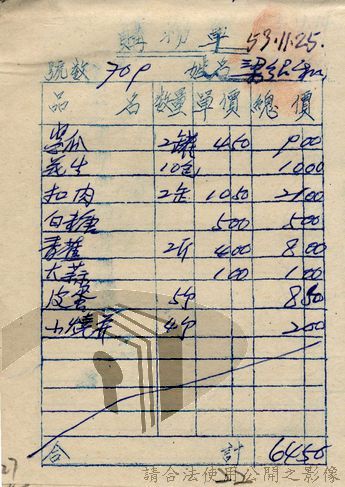 購物單 53.11.25.
號數 709 姓名
品名 數量 單價 總價
醬瓜 2罐 450 900
花生 10包 1000
扣肉 2缶 1050 2100
白糖 500 500
香蕉 2斤 400 800
大蒜 100 100
皮蛋 5個 850
小燒餅 4個 200
合計 6450
請合法使用公開之影像